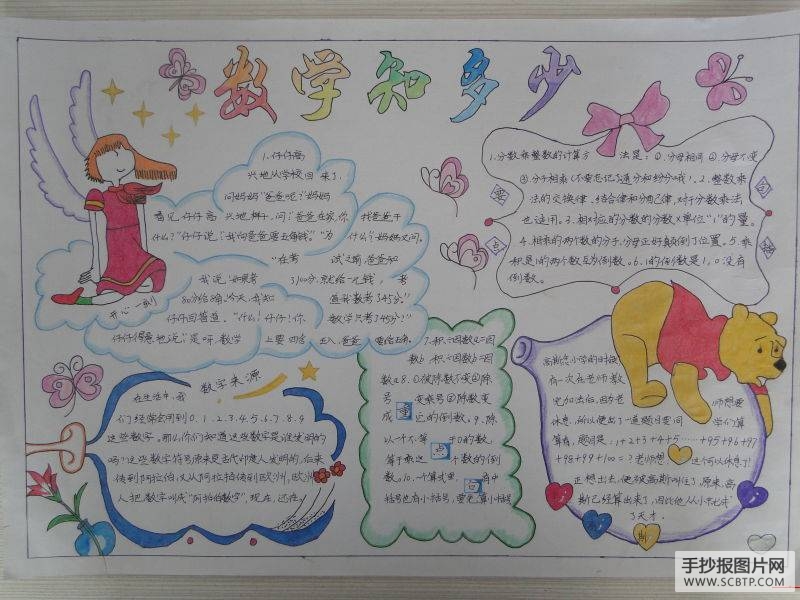 数学知多少
1.仔仔高
兴地从学校回来了,
问妈妈"爸爸呢?"妈妈
看见仔仔高兴地样子,问:"爸爸在家,你找爸爸干
什么?"仔仔说:"我向爸爸要五角钱。""为什么?"妈妈又问。
"在考试之前,爸爸和
我说,如果考100分,就给一元钱,考
80分给
今天,我知道我数考了45分."
开心一刻
仔仔回答道."什么!仔仔!你数学只考了45分?"
仔仔得意地说:"是呀.数学上要四舍五入,爸爸要给五角.
1.分数乘整数的计算方法是:①.分母相同②.分母不变
③.分子相乘(不要忘记了通分和约分哦!).2.整数乘
法的交换律、结合律和分配律,对于分数乘法
也适用。3.相对应的分数的分数×单位"1"的量。
4.相乘的两个数的分子,分母正好颠倒了位置。5.乘
积是1的两个数互为倒数。6.1的倒数是1,0没有
倒数。
数学来源
在生活中,我
们经常会用到0.1.2.3.4.5.6.7.8.9
这些数字。那么你们知道这些数字是谁发明的
吗?这些数字符号原来是古代印度人发明的,后来
传到阿拉伯,又从阿拉伯传到欧洲,欧洲
人把数字叫成"阿拉伯数字",现在,还在
7.积÷因数a=因
数b 积÷因数b=因
数a 8.①被除数不变②除
号变乘号③除数变
成它的倒数。9.除
以一个不等于0的数,
等于乘这个数的倒
数。10.一个算式里,有中
括号也有小括号,要先算小括号
重
点
高斯念小学的时候,
有一次在老师教
完加法后,因为老师想要
休息,所以便出了一道题目要同学们算
算看,题目是:1+2+3+4+5……+95+96+97
+98+99+100=?老师想,这个可以休息了!
正想出去,便被高斯叫住了,原来,高
斯已经算出来了,因此他从小就成
了天才.
手抄报图片网
WWW.SCBTP.COM